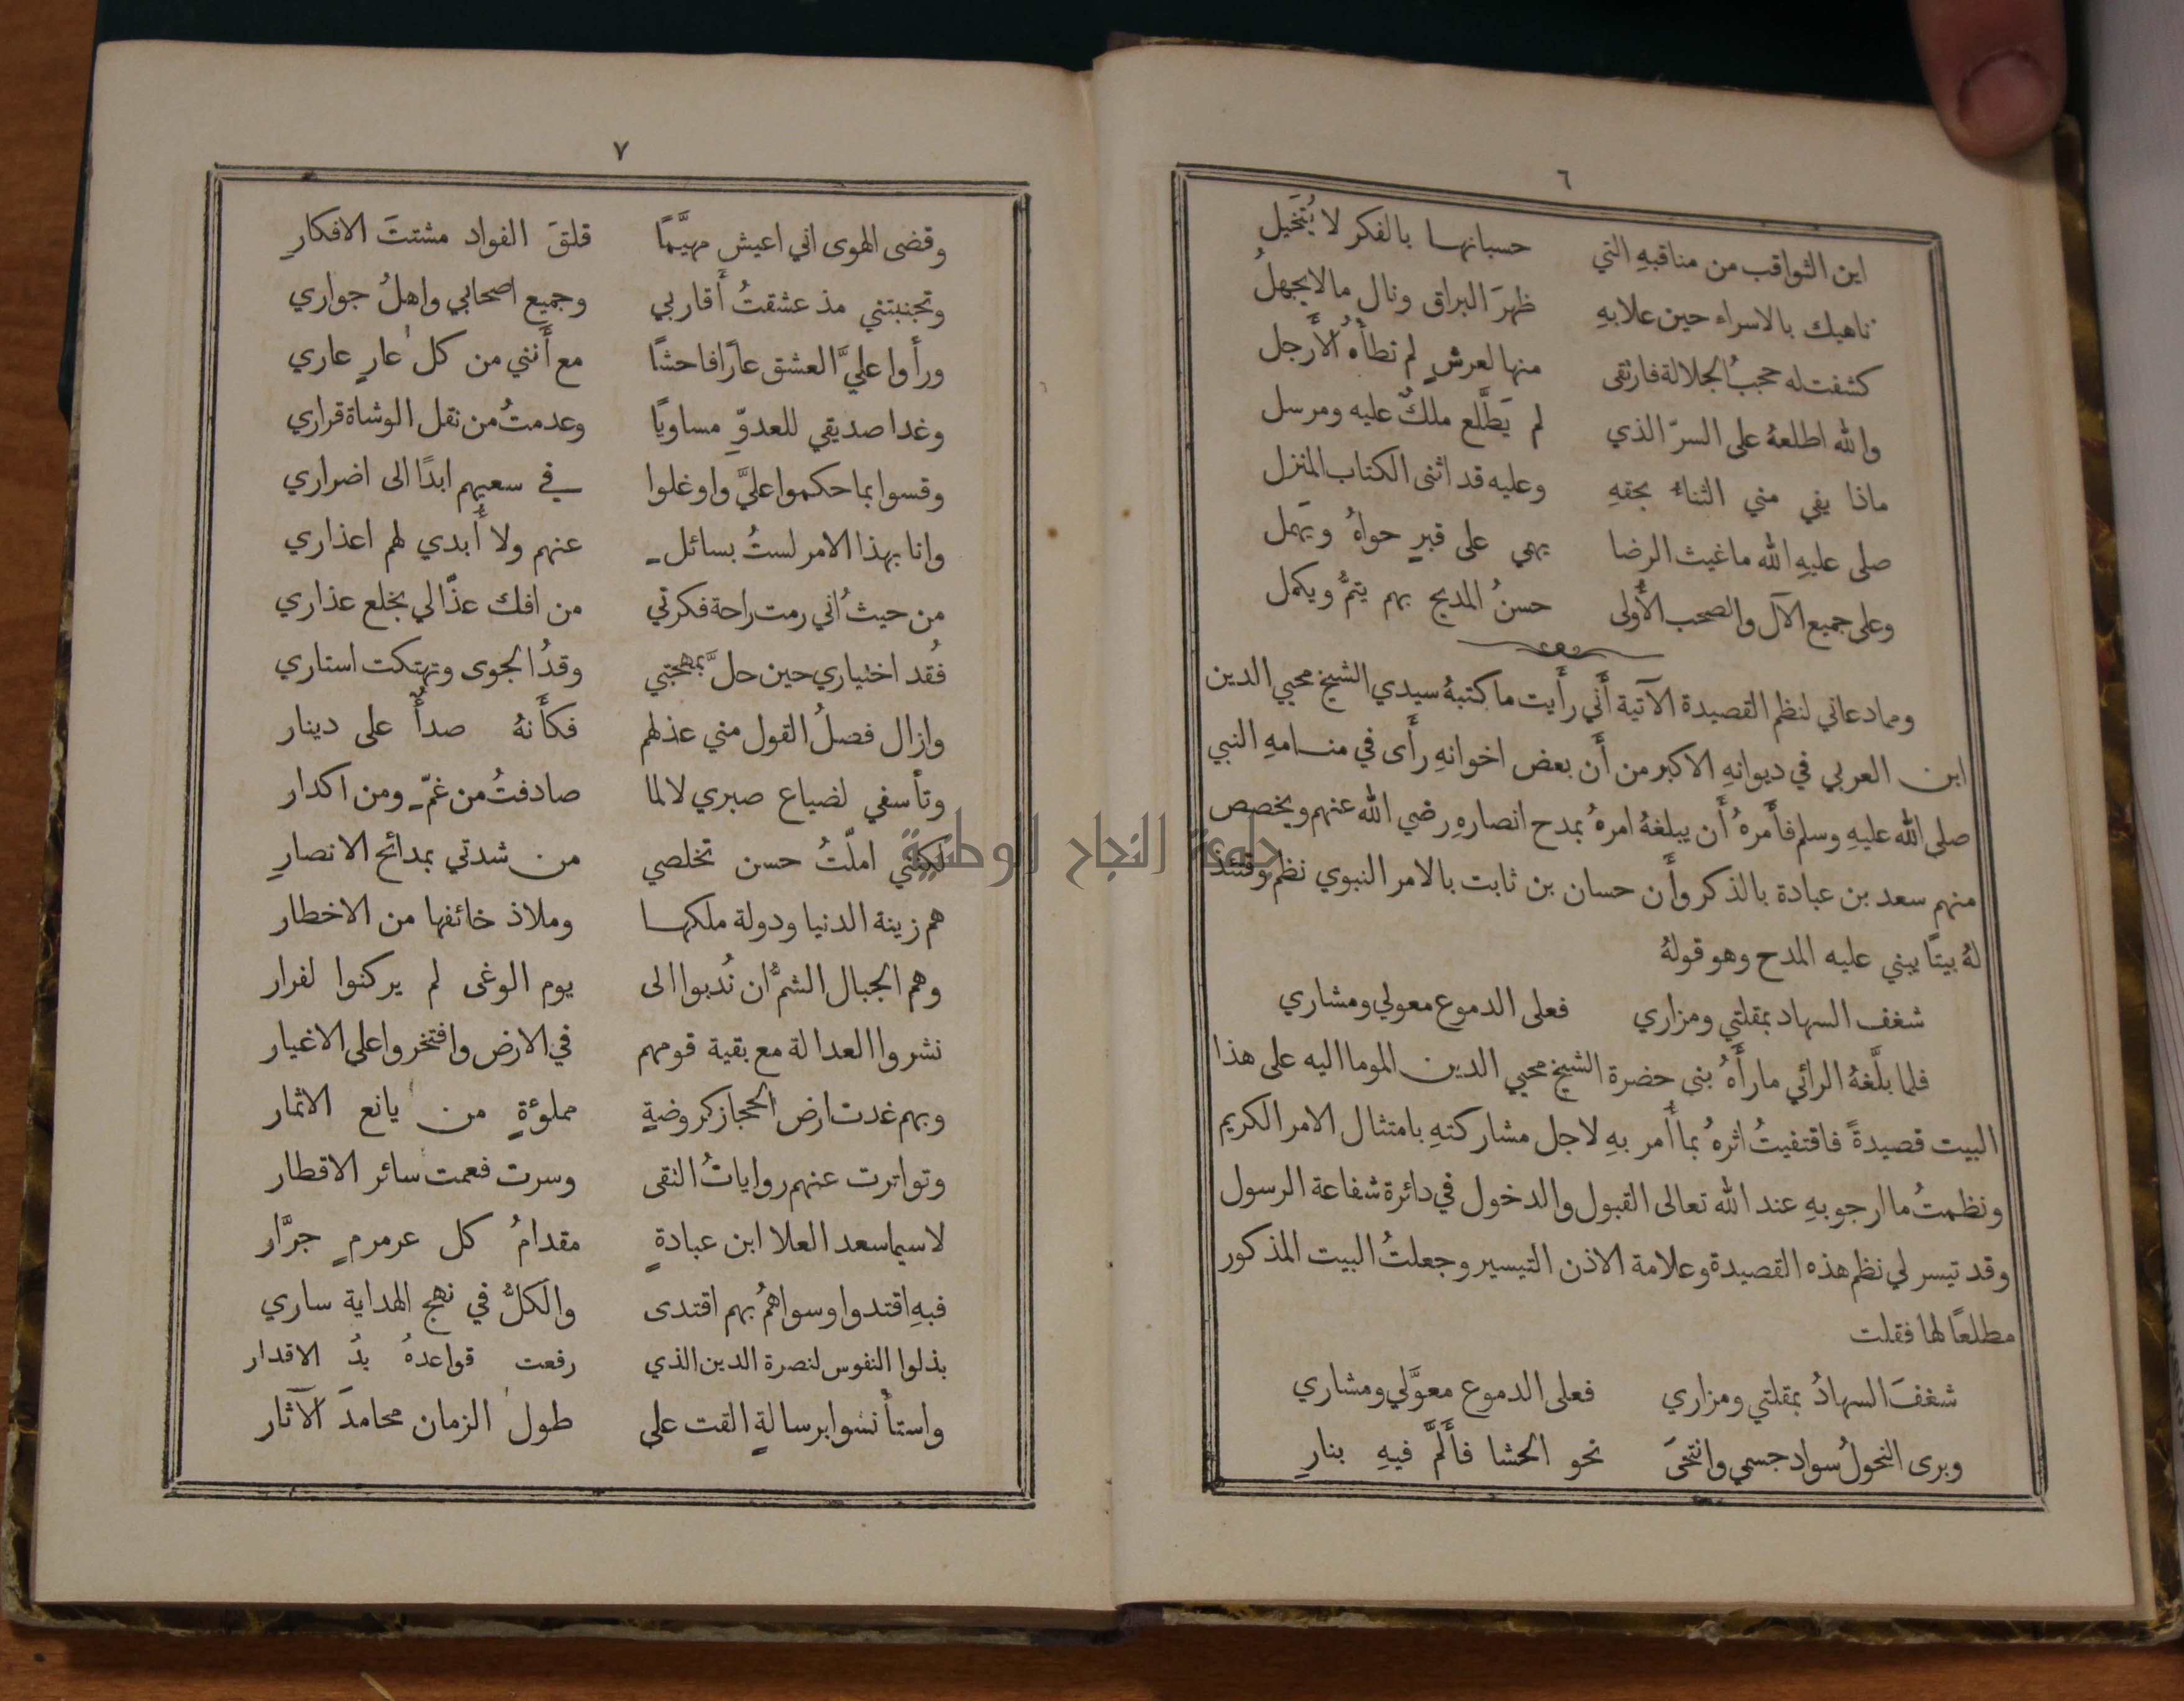 ٦
اين الثواقب من مناقبهِ التي حسبانها بالفكر لا يُتَخيل
ناهيك بالاسراء حين علا بهِ ظهرَ البراق ونال ما لا يجهلُ
كشفت له حجبُ الجلالة فارتقى منها لعرشٍ لم تطأْهُ الأَرجل
والله اطلعهُ على السرّ الذي لم يَطَّلع ملكٌ عليه ومرسل
ماذا يفي مني الثناءُ بحقهِ وعليه قد اثنى الكتاب المنزل
صلى عليهِ الله ما غيث الرضا يهمي على قبرٍ حواهُ ويَهمل
وعلى جميع الآل والصحب الأُولى حسنُ المديح بهم يتمُّ ويكمل
ومما دعاني لنظم القصيدة الآتية أَني رأَيت ما كتبهُ سيدي الشيخ محيي الدين
ابن العربي في ديوانهِ الاكبر من أَن بعض اخوانهِ رأَى في منامهِ النبي
صلى الله عليهِ وسلم فأَمرهُ أَن يبلغهُ امرهُ بمدح انصارهِ رضي الله عنهم ويخصص
منهم سعد بن عبادة بالذكر وأَن حسان بن ثابت بالامر النبوي نظم وقتئذ
لهُ بيتًا يبني عليه المدح وهو قولهُ
شغف السهاد بمقلتي ومزاري فعلى الدموع معولي ومشاري
فلما بلَّغهُ الرائي ما رأَهُ بنى حضرة الشيخ محيي الدين الموما اليه على هذا
البيت قصيدةً فاقتفيتُ اثرهُ بما أُمر بهِ لاجل مشاركتهِ بامتثال الامر الكريم
ونظمتُ ما ارجو بهِ عند الله تعالى القبول والدخول في دائرة شفاعة الرسول
وقد تيسر لي نظم هذه القصيدة وعلامة الاذن التيسير وجعلتُ البيت المذكور
مطلعًا لها فقلت
شغفَ السهادُ بمقلتي ومزاري فعلى الدموع معوَّلي ومشاري
وبرى النحولُ سواد جسمي وانتحَى نحو الحشا فأَلمَّ فيهِ بنارِ
٧
وقضى الهوى اني اعيش مهيَّمًا قلقَ الفواد مشتتَ الافكارِ
وتجنبتني مذ عشقتُ أَقاربي وجميع اصحابي واهلُ جواري
ورأَوا عليَّ العشق عارًا فاحشًا مع أَنني من كل عارٍ عاري
وغدا صديقي للعدوِّ مساويًا وعدمتُ من نقل الوشاة قراري
وقسوا بما حكموا عليَّ واوغلوا في سعيهم ابدًا الى اضراري
وانا بهذا الامر لستُ بسائل عنهم ولا أُبدي لهم اعذاري
من حيثُ اني رمت راحة فكرتي من افك عذّالي بخلع عذاري
فُقد اختياري حين حلَّ بمهجتي وقدُ الجوى وتهتكت استاري
وازال فصلُ القول مني عذلهم فكأَنهُ صدأٌ على دينار
وتأسفي لضياع صبري لا لما صادفتُ من غمٍّ ومن اكدار
لكنني املّتُ حسن تخلصي من شدتي بمدائح الانصارِ
هم زينة الدنيا ودولة ملكها وملاذ خائفها من الاخطار
وهم الجبال الشمُّ ان نُدبوا الى يوم الوغى لم يركنوا لفرار
نشروا العدالة مع بقية قومهم في الارض وافتخروا على الاغيار
وبهم غدت ارض الحجاز كروضةٍ مملوءةٍ من يانع الاثمار
وتواترت عنهم رواياتُ التقى وسرت فعمت سائر الاقطار
لاسيما سعد العلا ابن عبادةٍ مقدامُ كل عرمرمٍ جرَّار
فبهِ اقتدوا وسواهمُ بهم اقتدى والكلُّ في نهج الهداية ساري
بذلوا النفوس لنصرة الدين الذي رفعت قواعدهُ يدُ الاقدار
واستأنسوا برسالةٍ القت على طول الزمان محامدَ الآثار
جامعة النجاح الوطنية